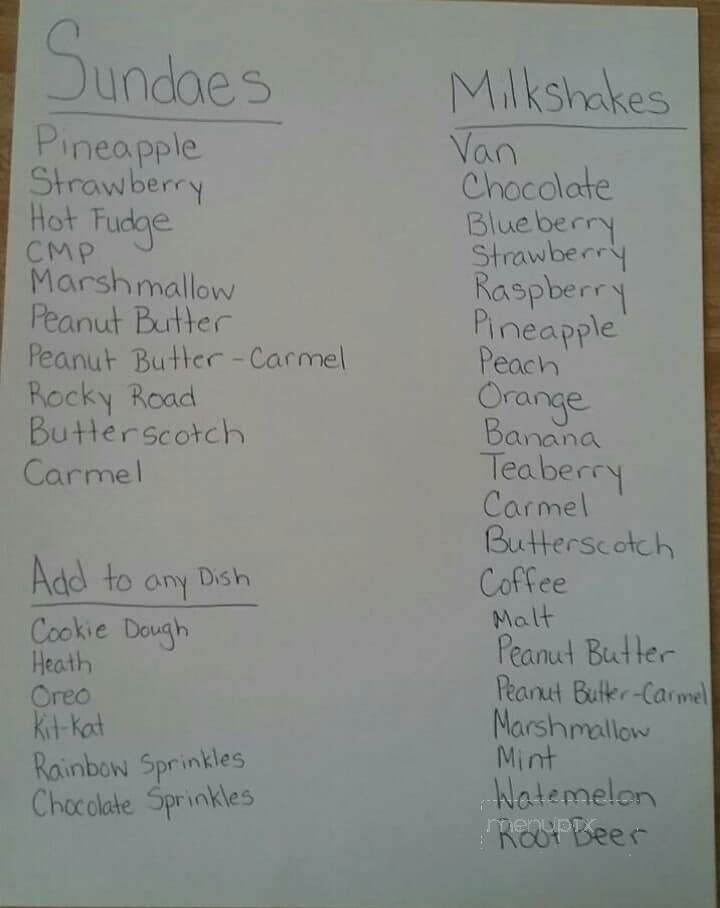 Sundaes
Pineapple
Strawberry
Hot Fudge
CMP
Marshmallow
Peanut Butter
Peanut Butter-Carmel
Rocky Road
Butterscotch
Carmel
Add to any Dish
Cookie Dough
Heath
Oreo
Kit-Kat
Rainbow Sprinkles
Chocolate Sprinkles
Milkshakes
Van
Chocolate
Blueberry
Strawberry
Raspberry
Pineapple
Peach
Orange
Banana
Teaberry
Carmel
Butterscotch
Coffee
Malt
Peanut Butter
Peanut Butter-Carmel
Marshmallow
Mint
Watemelon
menupix
Root Beer